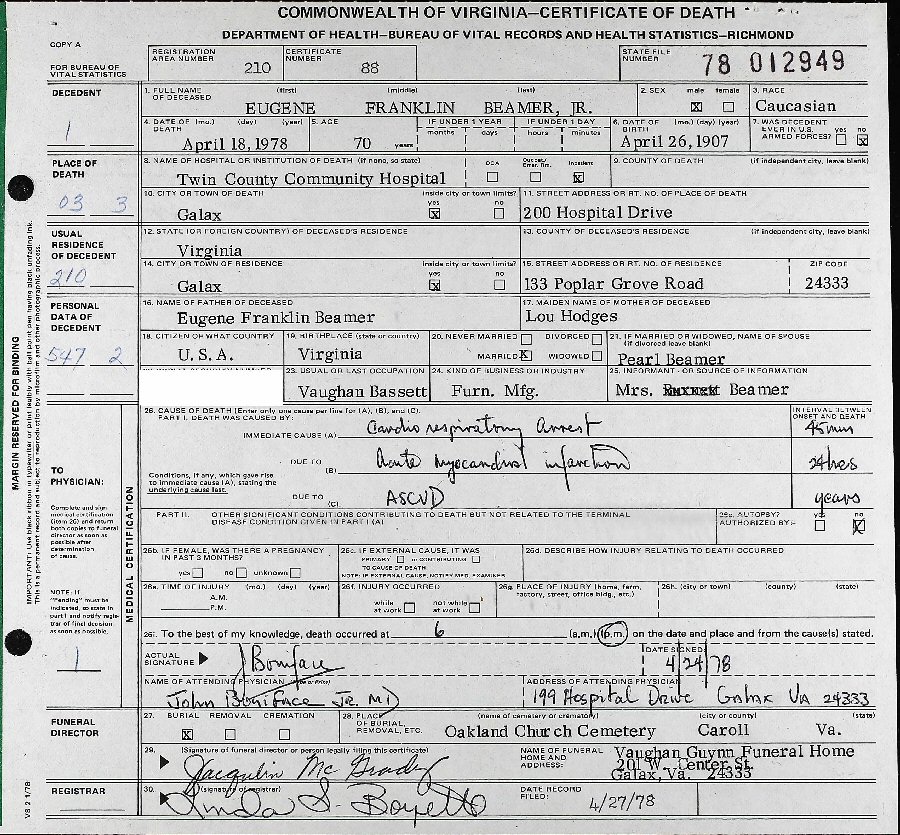 COMMONWEALTH OF VIRGINIA—CERTIFICATE OF DEATH
DEPARTMENT OF HEALTH—BUREAU OF VITAL RECORDS AND HEALTH STATISTICS—RICHMOND
COPY A
FOR BUREAU OF VITAL STATISTICS
REGISTRATION AREA NUMBER 210
CERTIFICATE NUMBER 88
STATE FILE NUMBER 78 012949
DECEDENT
1
1. FULL NAME OF DECEASED (first) (middle) (last)
EUGENE FRANKLIN BEAMER, JR.
2. SEX male X female
3. RACE Caucasian
4. DATE OF DEATH (mo.) (day) (year) April 18, 1978
5. AGE 70 years
IF UNDER 1 YEAR months days
IF UNDER 1 DAY hours minutes
6. DATE OF BIRTH (mo.) (day) (year) April 26, 1907
7. WAS DECEDENT EVER IN U.S. ARMED FORCES? yes no X
PLACE OF DEATH
03 3
8. NAME OF HOSPITAL OR INSTITUTION OF DEATH (if none, so state)
Twin County Community Hospital
DOA Outpat/ Emer. Rm. Inpatient X
9. COUNTY OF DEATH (if independent city, leave blank)
10. CITY OR TOWN OF DEATH Galax
inside city or town limits? yes X no
11. STREET ADDRESS OR RT. NO. OF PLACE OF DEATH
200 Hospital Drive
USUAL RESIDENCE OF DECEDENT
210
12. STATE (OR FOREIGN COUNTRY) OF DECEASED'S RESIDENCE
Virginia
13. COUNTY OF DECEASED'S RESIDENCE (if independent city, leave blank)
14. CITY OR TOWN OF RESIDENCE Galax
inside city or town limits? yes X no
15. STREET ADDRESS OR RT. NO. OF RESIDENCE 133 Poplar Grove Road
ZIP CODE 24333
PERSONAL DATA OF DECEDENT
547 2
16. NAME OF FATHER OF DECEASED
Eugene Franklin Beamer
17. MAIDEN NAME OF MOTHER OF DECEASED
Lou Hodges
18. CITIZEN OF WHAT COUNTRY U.S.A.
19. BIRTHPLACE (state or country) Virginia
20. NEVER MARRIED DIVORCED
MARRIED X WIDOWED
21. IF MARRIED OR WIDOWED, NAME OF SPOUSE (if divorced leave blank)
Pearl Beamer
23. USUAL OR LAST OCCUPATION Vaughan Bassett
24. KIND OF BUSINESS OR INDUSTRY Furn. Mfg.
25. INFORMANT - OR SOURCE OF INFORMATION
Mrs. Beamer
MARGIN RESERVED FOR BINDING
IMPORTANT! Use black ribbon in typewriter or print legibly with ball point pen having black unfading ink.
This is a permanent record and subject to reproduction by microfilm and other photographic process.
TO PHYSICIAN:
Complete and sign medical certification (item 26) and return both copies to funeral director as soon as possible after determination of cause.
NOTE: If "Pending" must be indicated, so state in part I and notify registrar of final decision as soon as possible.
1
MEDICAL CERTIFICATION
26. CAUSE OF DEATH (Enter only one cause per line for (A), (B), and (C).
PART I. DEATH WAS CAUSED BY:
INTERVAL BETWEEN ONSET AND DEATH
IMMEDIATE CAUSE (A) Cardio respiratory Arrest 45 min
DUE TO (B) Acute myocardial infarction 24 hrs
Conditions, if any, which gave rise to immediate cause (A), stating the underlying cause last.
DUE TO (C) ASCVD years
PART II. OTHER SIGNIFICANT CONDITIONS CONTRIBUTING TO DEATH BUT NOT RELATED TO THE TERMINAL DISEASE CONDITION GIVEN IN PART I (A)
26a. AUTOPSY? AUTHORIZED BY:- yes no X
26b. IF FEMALE, WAS THERE A PREGNANCY IN PAST 3 MONTHS?
yes no unknown
26c. IF EXTERNAL CAUSE, IT WAS
PRIMARY or CONTRIBUTING
TO CAUSE OF DEATH
NOTE: IF EXTERNAL CAUSE, NOTIFY MED. EXAMINER
26d. DESCRIBE HOW INJURY RELATING TO DEATH OCCURRED
26e. TIME OF INJURY (mo.) (day) (year)
A.M.
P.M.
26f. INJURY OCCURRED
while at work not while at work
26g. PLACE OF INJURY (home, farm, factory, street, office bldg., etc.)
26h. (city or town) (county) (state)
26i. To the best of my knowledge, death occurred at 6 (a.m.) (p.m.) on the date and place and from the cause(s) stated.
ACTUAL SIGNATURE J Boniface
DATE SIGNED: 4/24/78
NAME OF ATTENDING PHYSICIAN (Type or Print)
John Boniface Jr. MD
ADDRESS OF ATTENDING PHYSICIAN
199 Hospital Drive Galax VA 24333
FUNERAL DIRECTOR
27. BURIAL X REMOVAL CREMATION
28. PLACE OF BURIAL, REMOVAL, ETC. (name of cemetery or crematory) (city or county) (state)
Oakland Church Cemetery Caroll Va.
29. (Signature of funeral director or person legally filing this certificate)
Jacqulin McGrady
NAME OF FUNERAL HOME AND ADDRESS:
Vaughan Guynn Funeral Home
201 W. Center St.
Galax, Va. 24333
REGISTRAR
30. (signature of registrar)
Linda S. Boyette
DATE RECORD FILED: 4/27/78
VS 2 1/78